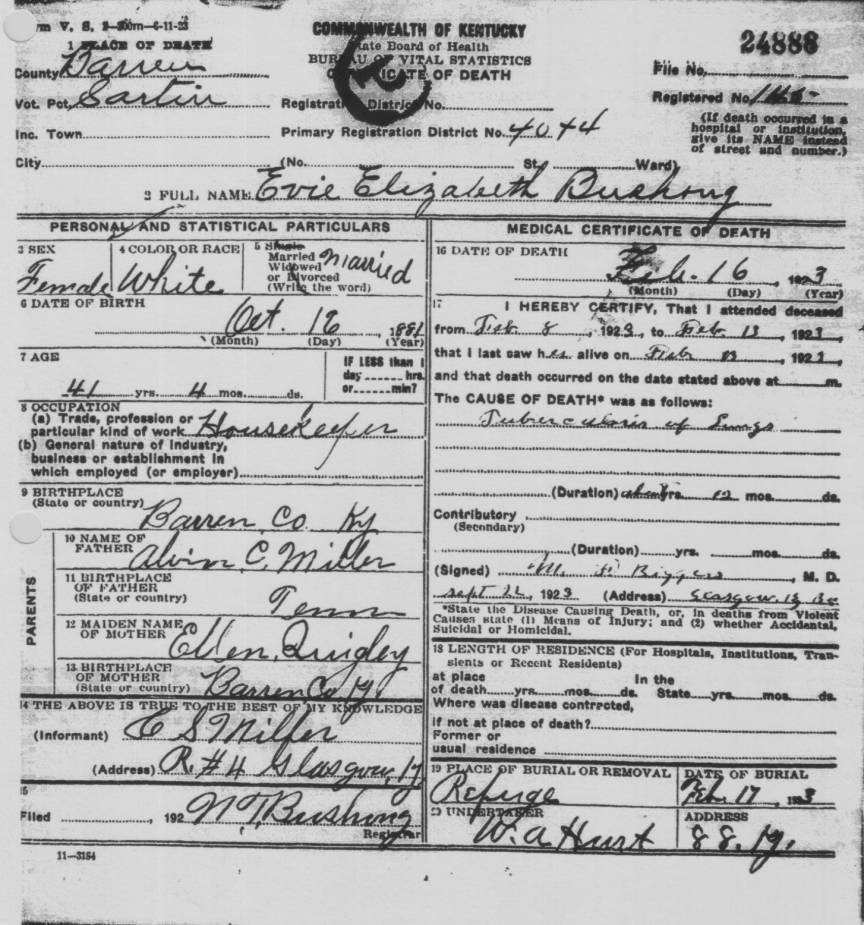 Form V. S. 2-300m-4-11-23
COMMONWEALTH OF KENTUCKY
State Board of Health
BUREAU OF VITAL STATISTICS
CERTIFICATE OF DEATH
24888
File No.
Registered No. 145
(If death occurred in a hospital or institution, give its NAME instead of street and number.)
1 PLACE OF DEATH
County Barren
Vot. Pct. Sartin
Registration District No.
Inc. Town
Primary Registration District No. 4044
City (No. St. Ward)
2 FULL NAME Evie Elizabeth Bushong
PERSONAL AND STATISTICAL PARTICULARS
3 SEX Female
4 COLOR OR RACE White
5 Single Married Widowed or Divorced (Write the word) Married
6 DATE OF BIRTH
Oct. 16, 1881
(Month) (Day) (Year)
7 AGE
41 yrs. 4 mos. ds.
IF LESS than 1 day hrs. or min?
8 OCCUPATION
(a) Trade, profession or
particular kind of work Housekeeper
(b) General nature of industry,
business or establishment in
which employed (or employer)
9 BIRTHPLACE
(State or country)
Barren Co. Ky
PARENTS
10 NAME OF FATHER Alvin C. Miller
11 BIRTHPLACE OF FATHER
(State or country) Tenn
12 MAIDEN NAME OF MOTHER Ellen Quigley
13 BIRTHPLACE OF MOTHER
(State or country) Barren Co Ky.
14 THE ABOVE IS TRUE TO THE BEST OF MY KNOWLEDGE
(Informant) C S Miller
(Address) R. #4 Glasgow, Ky
15
Filed , 192 N. T. Bushong
Registrar
11-3184
MEDICAL CERTIFICATE OF DEATH
16 DATE OF DEATH
Feb. 16, 1923
(Month) (Day) (Year)
17 I HEREBY CERTIFY, That I attended deceased
from Feb 8, 1923, to Feb 13, 1923,
that I last saw her alive on Feb , 1923,
and that death occurred on the date stated above at m.
The CAUSE OF DEATH* was as follows:
Tuberculosis of Lungs
(Duration) about yrs. 12 mos. ds.
Contributory
(Secondary)
(Duration) yrs. mos. ds.
(Signed) Biggers, M. D.
Sept 22, 1923 (Address) Glasgow Ky
*State the Disease Causing Death, or, in deaths from Violent
Causes state (1) Means of Injury; and (2) whether Accidental,
Suicidal or Homicidal.
18 LENGTH OF RESIDENCE (For Hospitals, Institutions, Tran-
sients or Recent Residents)
at place In the
of death yrs. mos. ds. State yrs. mos. ds.
Where was disease contrrcted,
if not at place of death?
Former or
usual residence
19 PLACE OF BURIAL OR REMOVAL
Refuge
DATE OF BURIAL
Feb. 17, 1923
20 UNDERTAKER
W. A Hurt
ADDRESS
88. Ky.